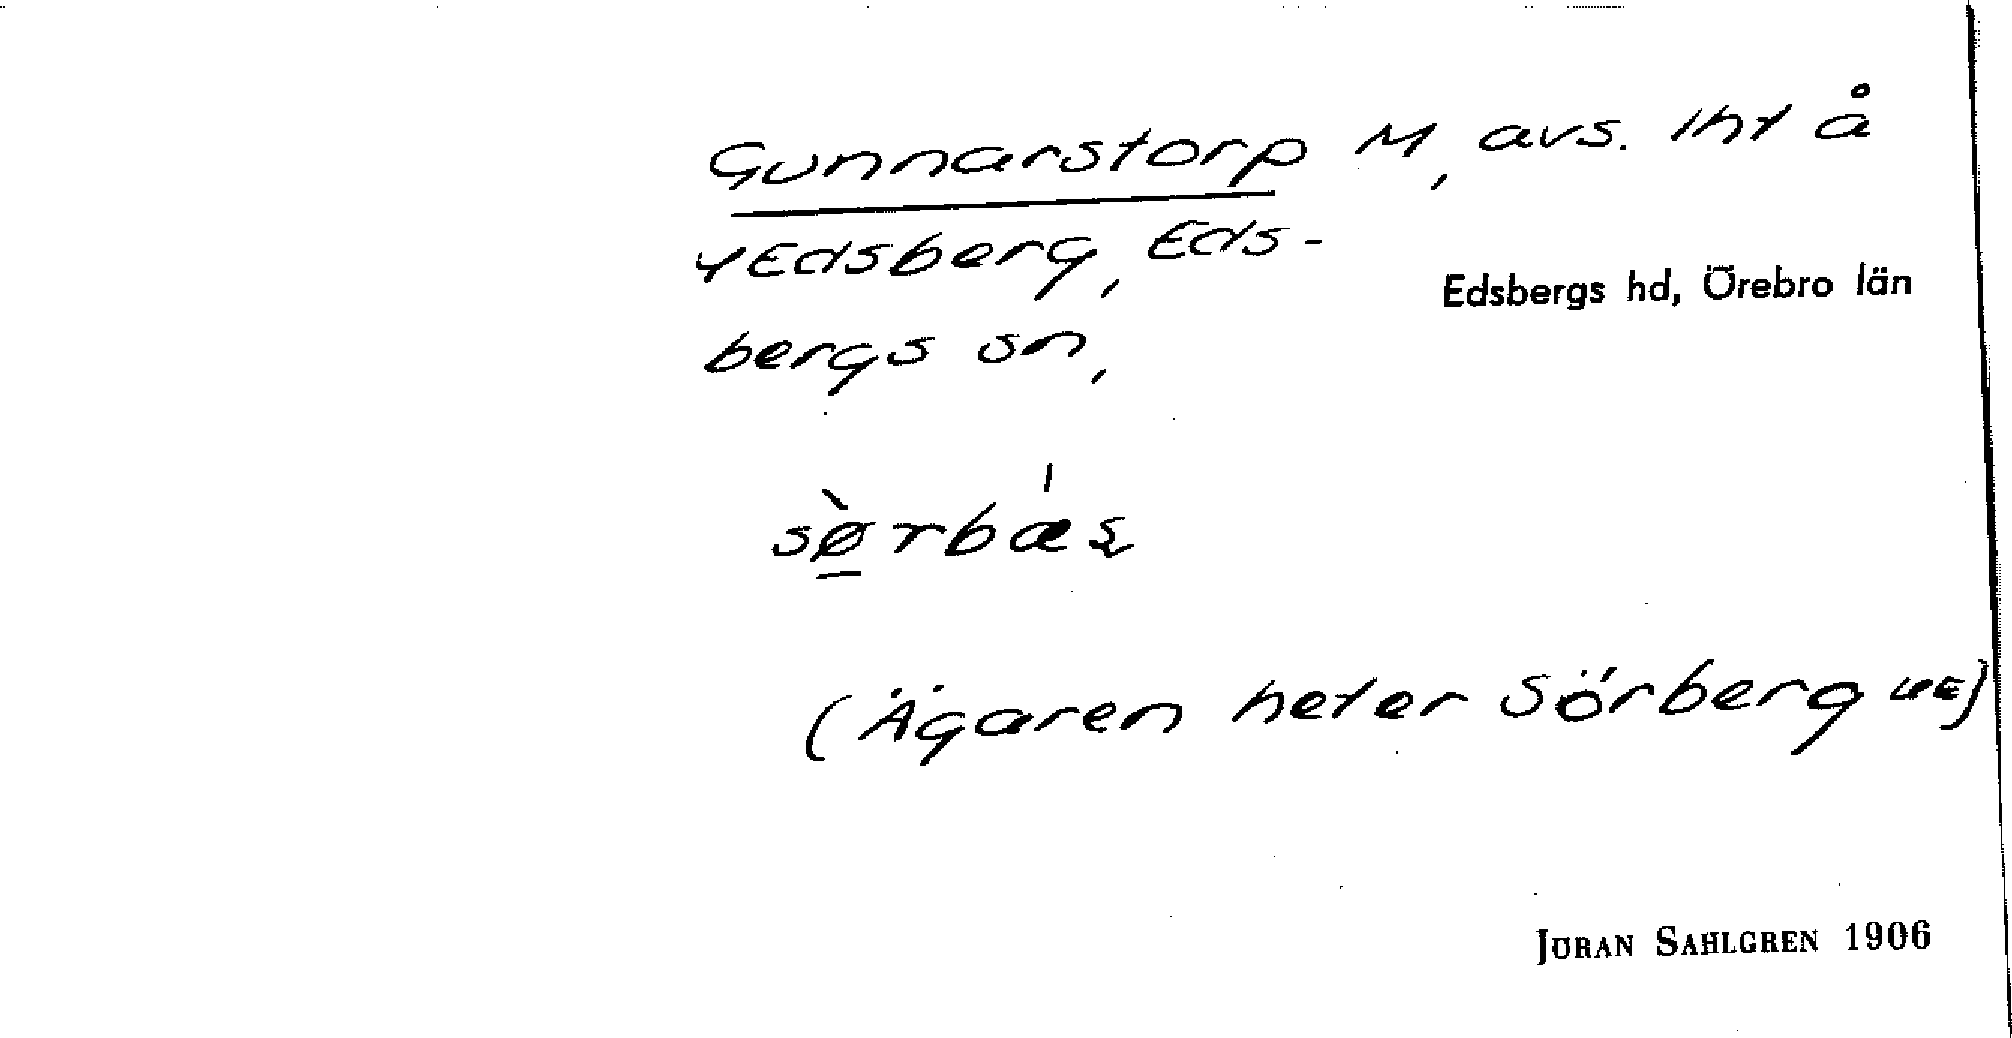 Gunnarstorp M, avs. lht å
YEdsberg, Eds-
bergs sn,
Edsbergs hd, Örebro län
(Ägaren heter Sörberg
JÖRAN SAHLGREN 1906